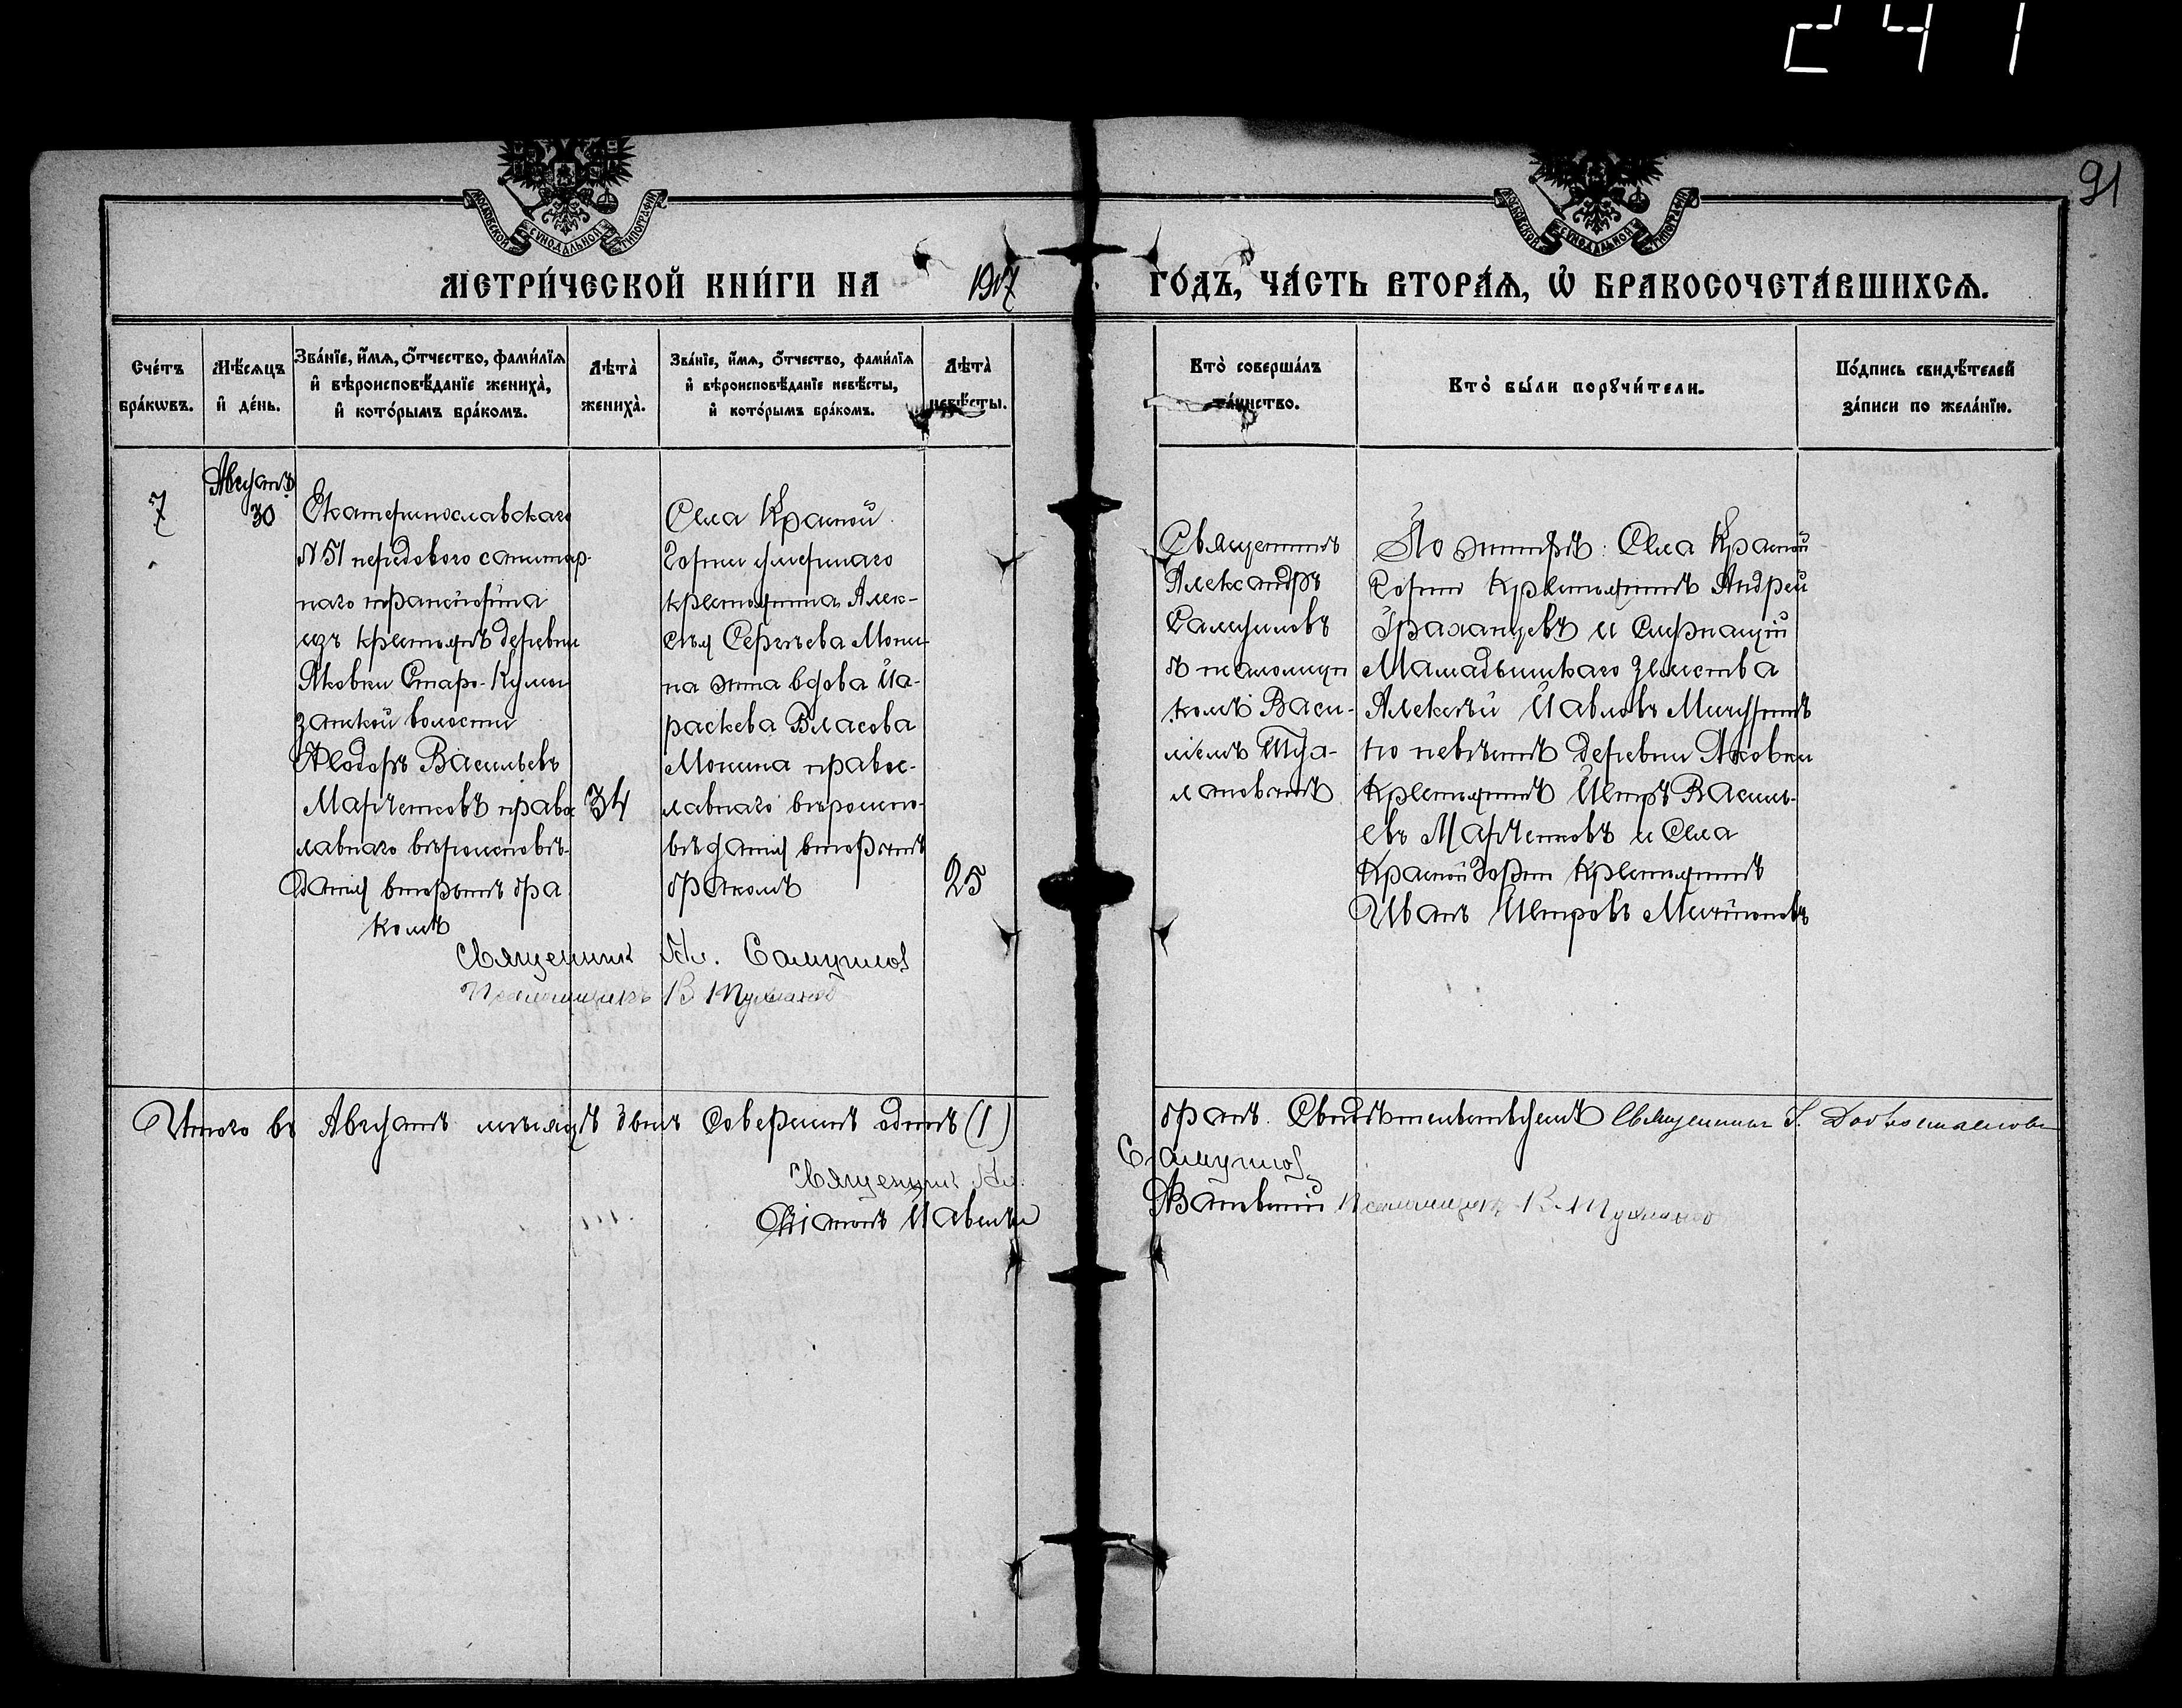 241
91
МОСКОВСКОЙ СѴНОДАЛЬНОЙ ТИПОГРАФІИ
МОСКОВСКОЙ СѴНОДАЛЬНОЙ ТИПОГРАФІИ
МЕТРИ́ЧЕСКОЙ КНИ́ГИ НА 1917 ГО́ДЪ, ЧА́СТЬ ВТОРА́Ѧ, Ѽ БРАКОСОЧЕТА́ВШИХСѦ.
Сче́тъ
бра́кѡвъ.
Мѣ́сѧцъ
и҆ де́нь.
Зва́нїе, и҆́мѧ, ѻ҆́тчество, фами́лїѧ
и҆ вѣроисповѣ́данїе жениха̀,
и҆ кото́рымъ бра́комъ.
Лѣта̀
жениха̀.
Зва́нїе, и҆́мѧ, ѻ҆́тчество, фами́лїѧ
и҆ вѣроисповѣ́данїе невѣ́сты,
и҆ кото́рымъ бра́комъ.
Лѣта̀
невѣ́сты.
Кто̀ соверша́лъ
та́инство.
Кто̀ бы́ли порꙋчи́тели.
По́дпись свидѣ́телей
за́писи по жела́нїю.
7
Августъ
30
Екатеринославскаго
№ 51 передового санитар-
наго транспорта
изъ крестьянъ деревни
Яковки Старо-Кумоз
занской волости
Ѳеодоръ Васильевъ
Марченковъ правос
лавнаго вѣроисповѣ-
данія вторымъ бра
комъ
34
Села Красной
Горки умершаго
крестьянина Алек-
сѣя Сергѣева Мони-
на жена вдова Па-
раскева Власова
Монина правос-
лавнаго вѣроиспо-
вѣданія вторымъ
бракомъ
25
Священникъ
Александръ
Самуиловъ
съ псаломщи
комъ Васи-
ліемъ Тус-
лановымъ
По женихѣ: Села Красной
Горки крестьянинъ Андрей
и
Мамадышскаго земства
Алексѣй Павловъ
по невѣстѣ деревни Яковки
крестьянинъ Петръ Василь-
евъ Марченковъ и Села
Красной Горки крестьянинъ
Иванъ Петровъ
Священникъ Ал. Самуилов
Псаломщикъ В
Итого въ Августѣ мѣсяцѣ бракъ Совершенъ одинъ (1)
бракъ. Свидѣтельствуемъ Священникъ
Священникъ Ал. Самуилов
Діаконъ Павелъ Псаломщикъ В.